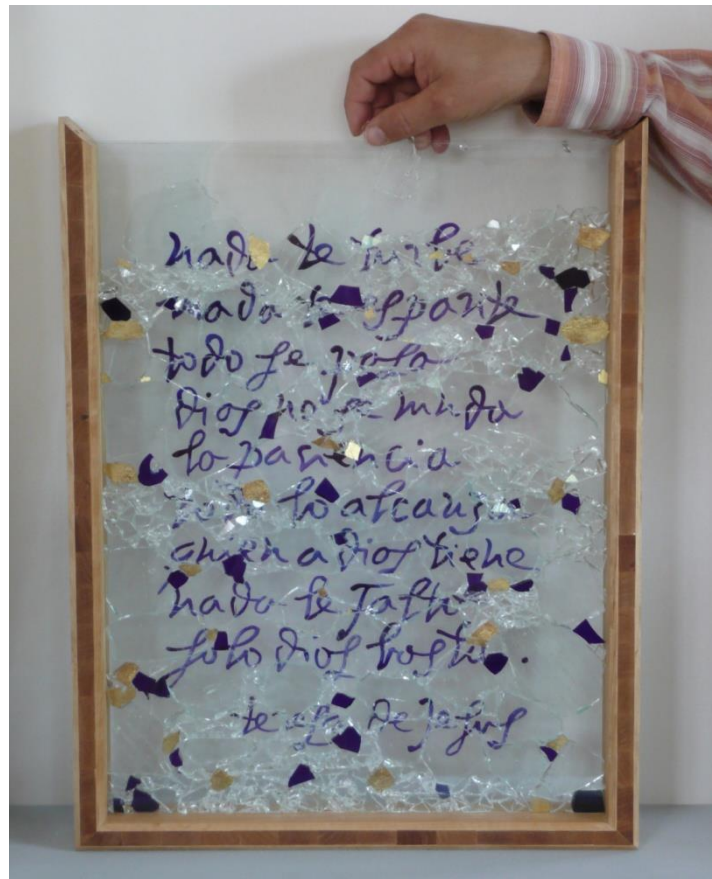 nada te turbe
nada te espante
todo se pasa
dios no se muda
la paciencia
todo lo alcanza
quien a dios tiene
nada le falta
solo dios basta.
teresa de jesus